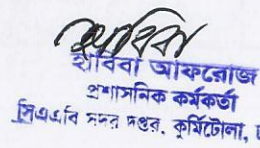 হাবিবা
হাবিবা আফরোজ
প্রশাসনিক কর্মকর্তা
সিএএবি সদর দপ্তর, কুর্মিটোলা,